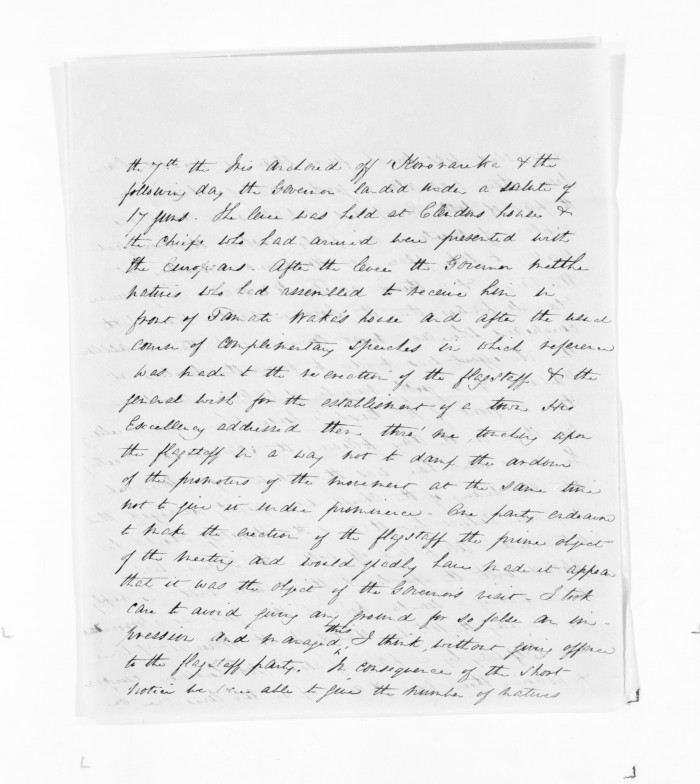 the 7th the Iris anchored off Kororareka & the
following day the Governor landed under a salute of
17 guns. The levee was held at Clendons house &
the chiefs who had arrived were presented with
the Europeans. After the levee the Governor met the
natives who had assembled to receive him in
front of Tamati Waka's house and after the usual
course of complimentary speeches in which reference
was made to the re erection of the flagstaff & the
general wish for the establishment of a town His
Excellency addressed them thro' me, touching upon
the flagstaff in a way not to damp the ardour
of the promoters of the movement at the same time
not to give it undue prominence. One party endeavor
to make the erection of the flagstaff the prime object
of the meeting and would gladly have made it appear
that it was the object of the Governors visit. I took
care to avoid giving any ground for so false an im-
pression and managed this, I think, without giving offence
to the flagstaff party. In consequence of the short
notice we able to give the number of natives